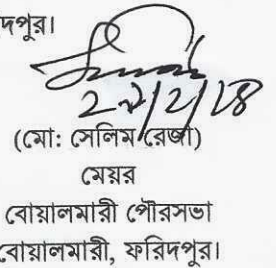 দপুর।
(মো: সেলিম রেজা)
মেয়র
বোয়ালমারী পৌরসভা
বোয়ালমারী, ফরিদপুর।